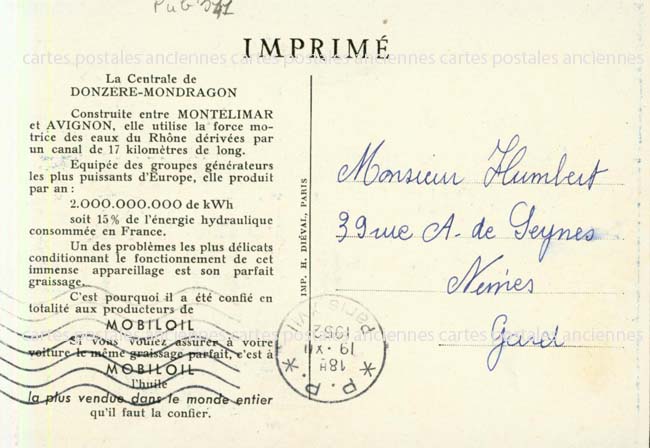 Pub 541
IMPRIMÉ
cartes postales anciennes cartes postales anciennes cartes postales anciennes
La Centrale de
DONZÈRE-MONDRAGON
Construite entre MONTELIMAR
et AVIGNON, elle utilise la force mo-
trice des eaux du Rhône dérivées par
un canal de 17 kilomètres de long.
Équipée des groupes générateurs
les plus puissants d'Europe, elle produit
par an :
2.000.000.000 de kWh
soit 15% de l'énergie hydraulique
consommée en France.
Un des problèmes les plus délicats
conditionnant le fonctionnement de cet
immense appareillage est son parfait
graissage.
C'est pourquoi il a été confié en
totalité aux producteurs de
MOBILOIL
Si vous voulez assurer à votre
voiture le même graissage parfait, c'est à
MOBILOIL
l'huile
la plus vendue dans le monde entier
qu'il faut la confier.
IMP. H. DIÉVAL, PARIS
Monsieur Humbert
39 rue A. de Seynes
Nimes
Gard
cartes postales anciennes cartes postales anciennes cartes postales anciennes
P.P.
18H
19·XII
1952
Paris XVII